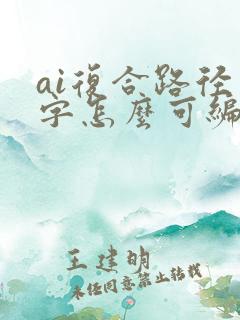 ai復合路徑
字怎麼可編
王建明
未经同意禁止转载